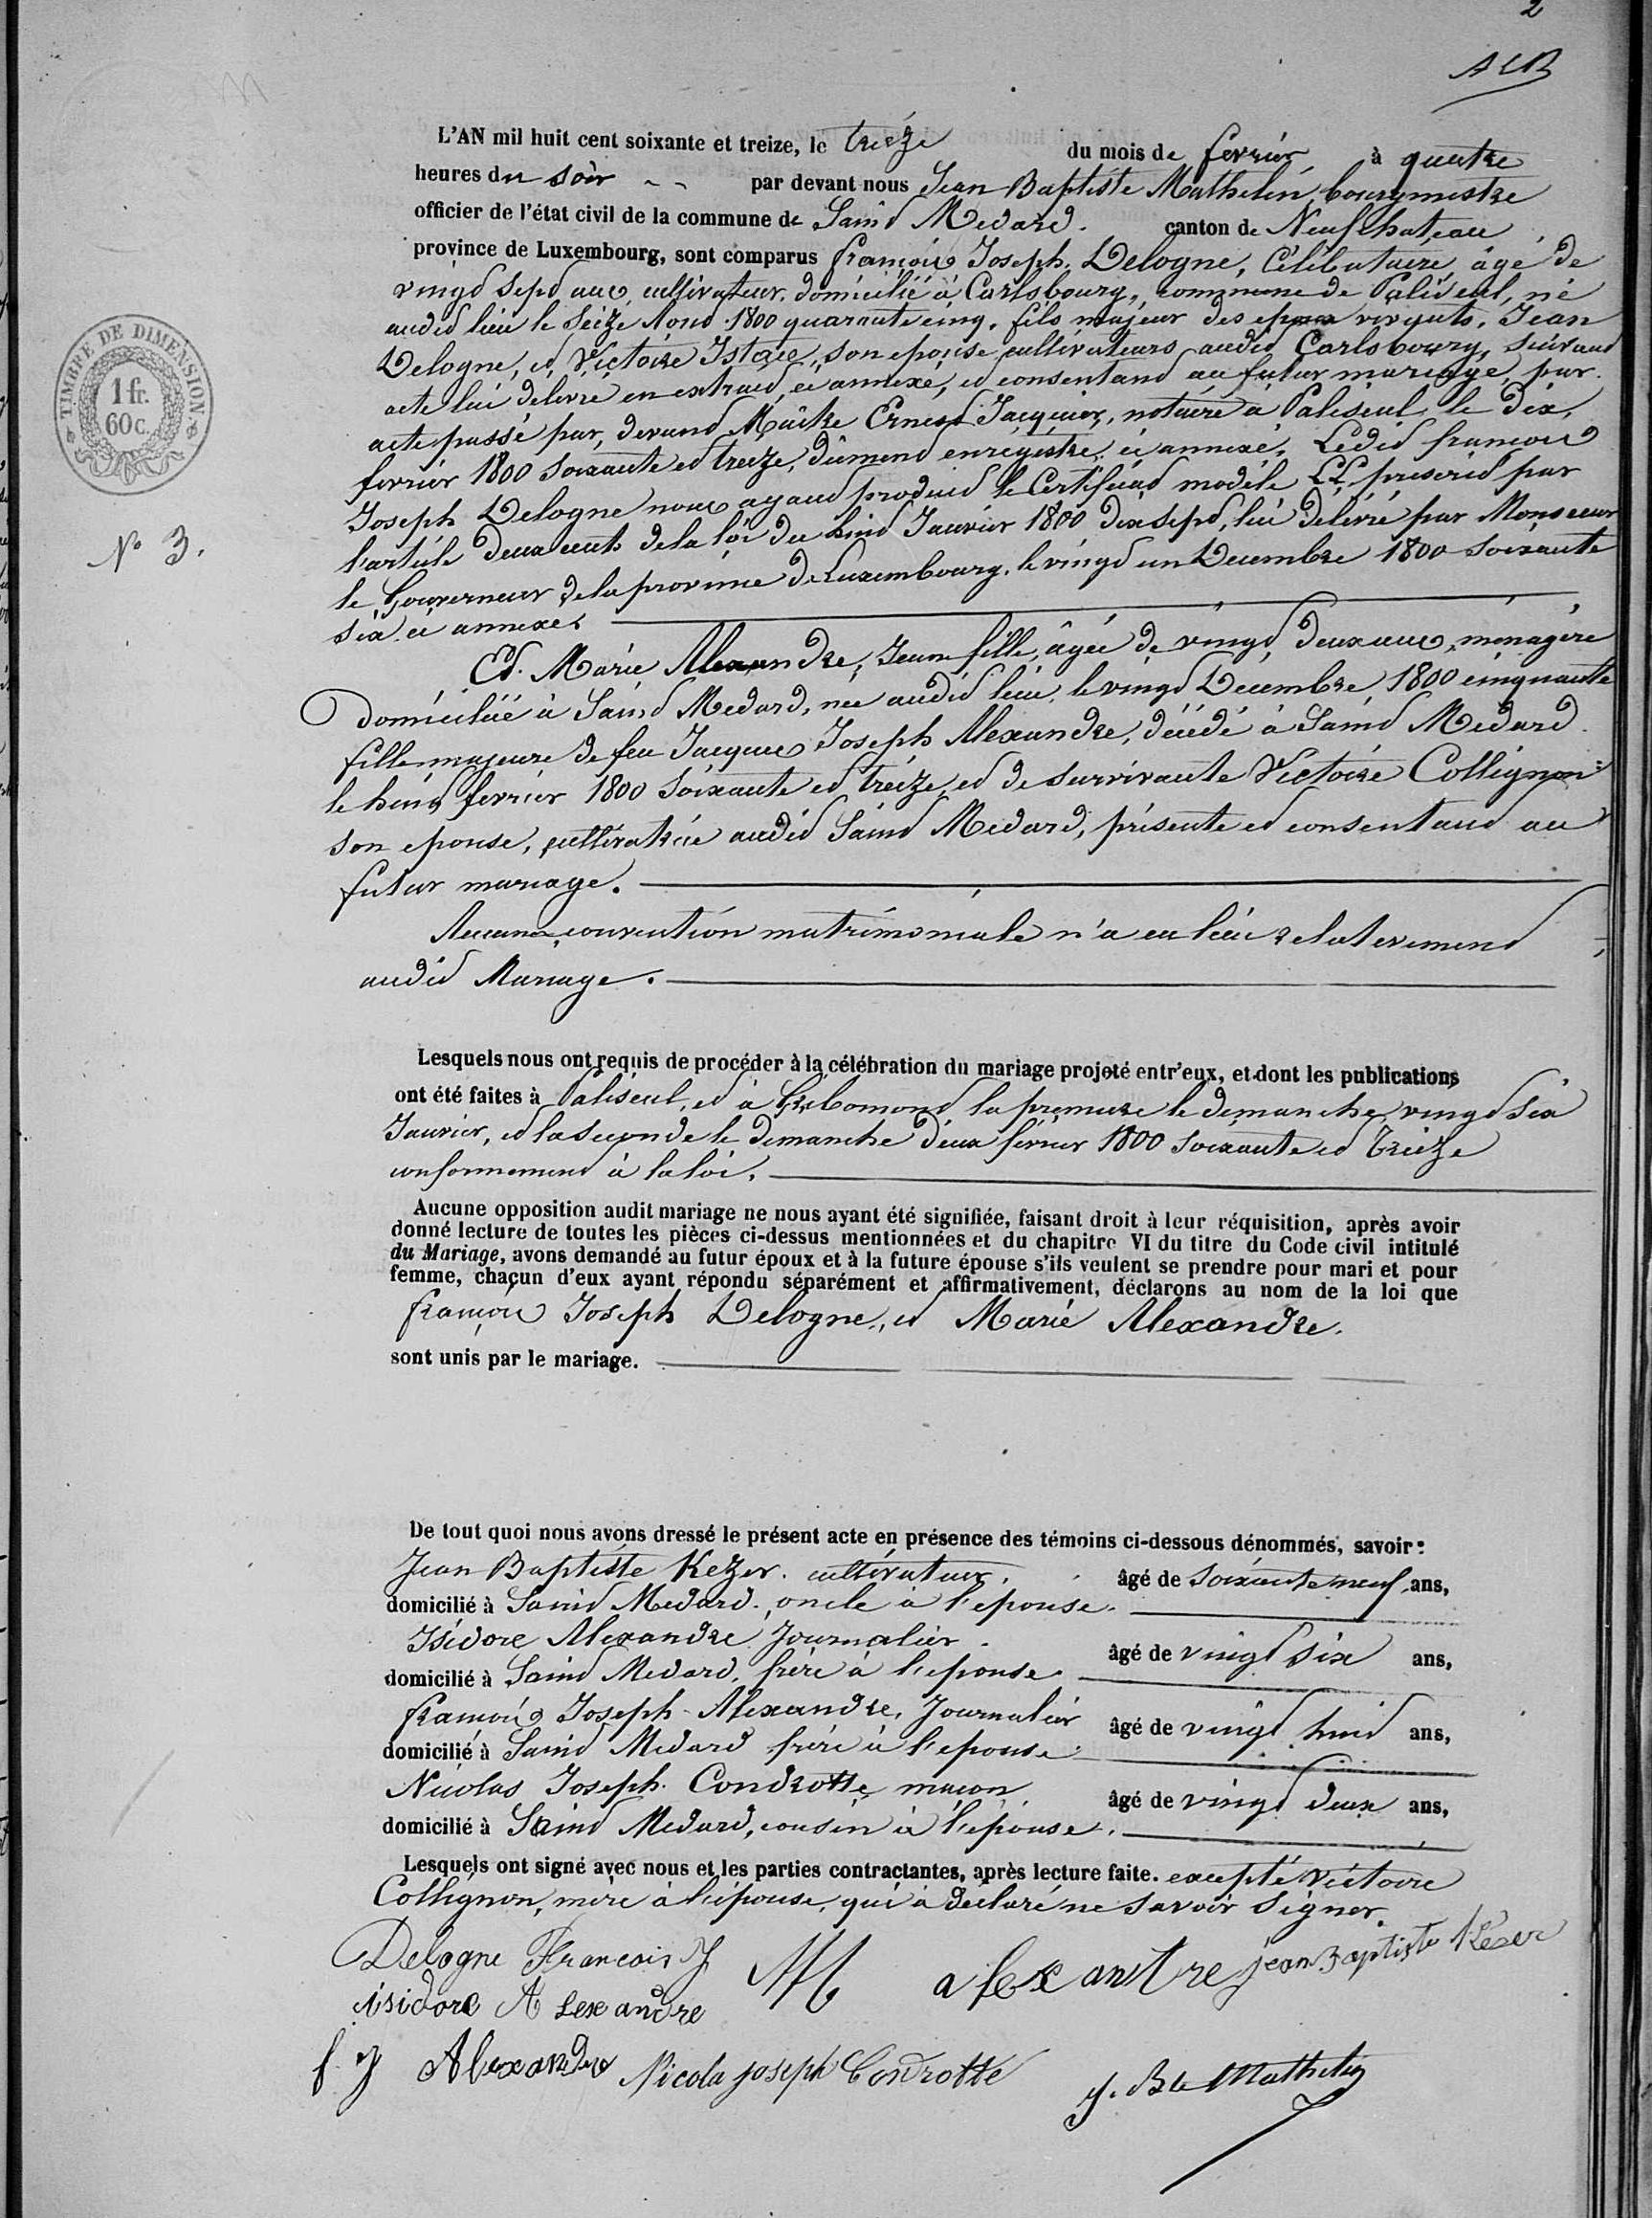 2
ACB
L'AN mil huit cent soixante et treize, le treize du mois de fevrier à quatre
heures du soir par devant nous Jean Baptiste Mathelin, bourgmestre
officier de l'état civil de la commune de Saind Medard. canton de Neufchateau
province de Luxembourg, sont comparus françois Joseph Delogne, Célibataire, âgé de
vingd sepd ans, cultivateur, domicilié à Carlsbourg, commune de Paliseul, né
audid lieu le seize Aoud 1800 quarante cinq, fils majeur des epoux vivants, Jean
Delogne, ed Victoire Istace, son epouse, cultivateurs audid Carlsbourg, suivand
acte lui delivré en extraid, ci annexé, ed consentand au futur mariage, par
acte passé par devand Maître Ernesd Jacquier, notaire à Paliseul le dix
fevrier 1800 soixante ed treize, dûmend enregistré, ci annexé. Ledid françois
Joseph Delogne nous ayand produid le Certificad modèle LL prescrid par
l'article deux cents de la loi du huid Janvier 1800 dix sepd, lui delivré par Monsieur
le Gouverneur de la province de Luxembourg, le vingd un Decembre 1800 soixante
six ci annexé.
Ed Marie Alexandre, Jeune fille, âgée de vingd deux ans, menagère
Domiciliée à Saind Medard, née audid lieu, le vingd Decembre 1800 cinquante
fille majeure de feu Jacques Joseph Alexandre, décédé à Saind Medard
le huid fevrier 1800 soixante ed treize, ed de survivante Victoire Collignon
son epouse, cultivatrice audid Saind Medard, présente ed consentand au
futur mariage.
Aucune convention matrimoniale n'a eu lieu relativemend
audid Mariage.
N° 3.
TIMBRE DE DIMENSION
1 fr.
60 c.
Lesquels nous ont requis de procéder à la célébration du mariage projeté entr'eux, et dont les publications
ont été faites à Paliseul, ed à la première le dimanche vingd six
Janvier, ed la seconde le dimanche deux février 1800 soixante ed Treize
conformemend à la loi.
Aucune opposition audit mariage ne nous ayant été signifiée, faisant droit à leur réquisition, après avoir
donné lecture de toutes les pièces ci-dessus mentionnées et du chapitre VI du titre du Code civil intitulé
du Mariage, avons demandé au futur époux et à la future épouse s'ils veulent se prendre pour mari et pour
femme, chaçun d'eux ayant répondu séparément et affirmativement, déclarons au nom de la loi que
françois Joseph Delogne, ed Marie Alexandre.
sont unis par le mariage.
De tout quoi nous avons dressé le présent acte en présence des témoins ci-dessous dénommés, savoir :
Jean Baptiste Kezer. cultivateur, âgé de soixante neuf ans,
domicilié à Saind Medard. oncle à l'epouse.
Isidore Alexandre Journalier. âgé de vingd six ans,
domicilié à Saind Medard, frère à l'epouse.
françois Joseph Alexandre, Journalier âgé de vingd huid ans,
domicilié à Saind Medard frère à l'epouse.
Nicolas Joseph Condrotte maçon âgé de vingd deux ans,
domicilié à Saind Medard, cousin à l'épouse.
Lesquels ont signé avec nous et les parties contractantes, après lecture faite. excepté Victoire
Collignon, mère à l'épouse, qui à déclaré ne savoir signer.
Delogne Francois J M alexantre jean Baptiste Késer
isidore Alexandre
f J Alexandre Nicola joseph Condrotte J. Bte Mathelin